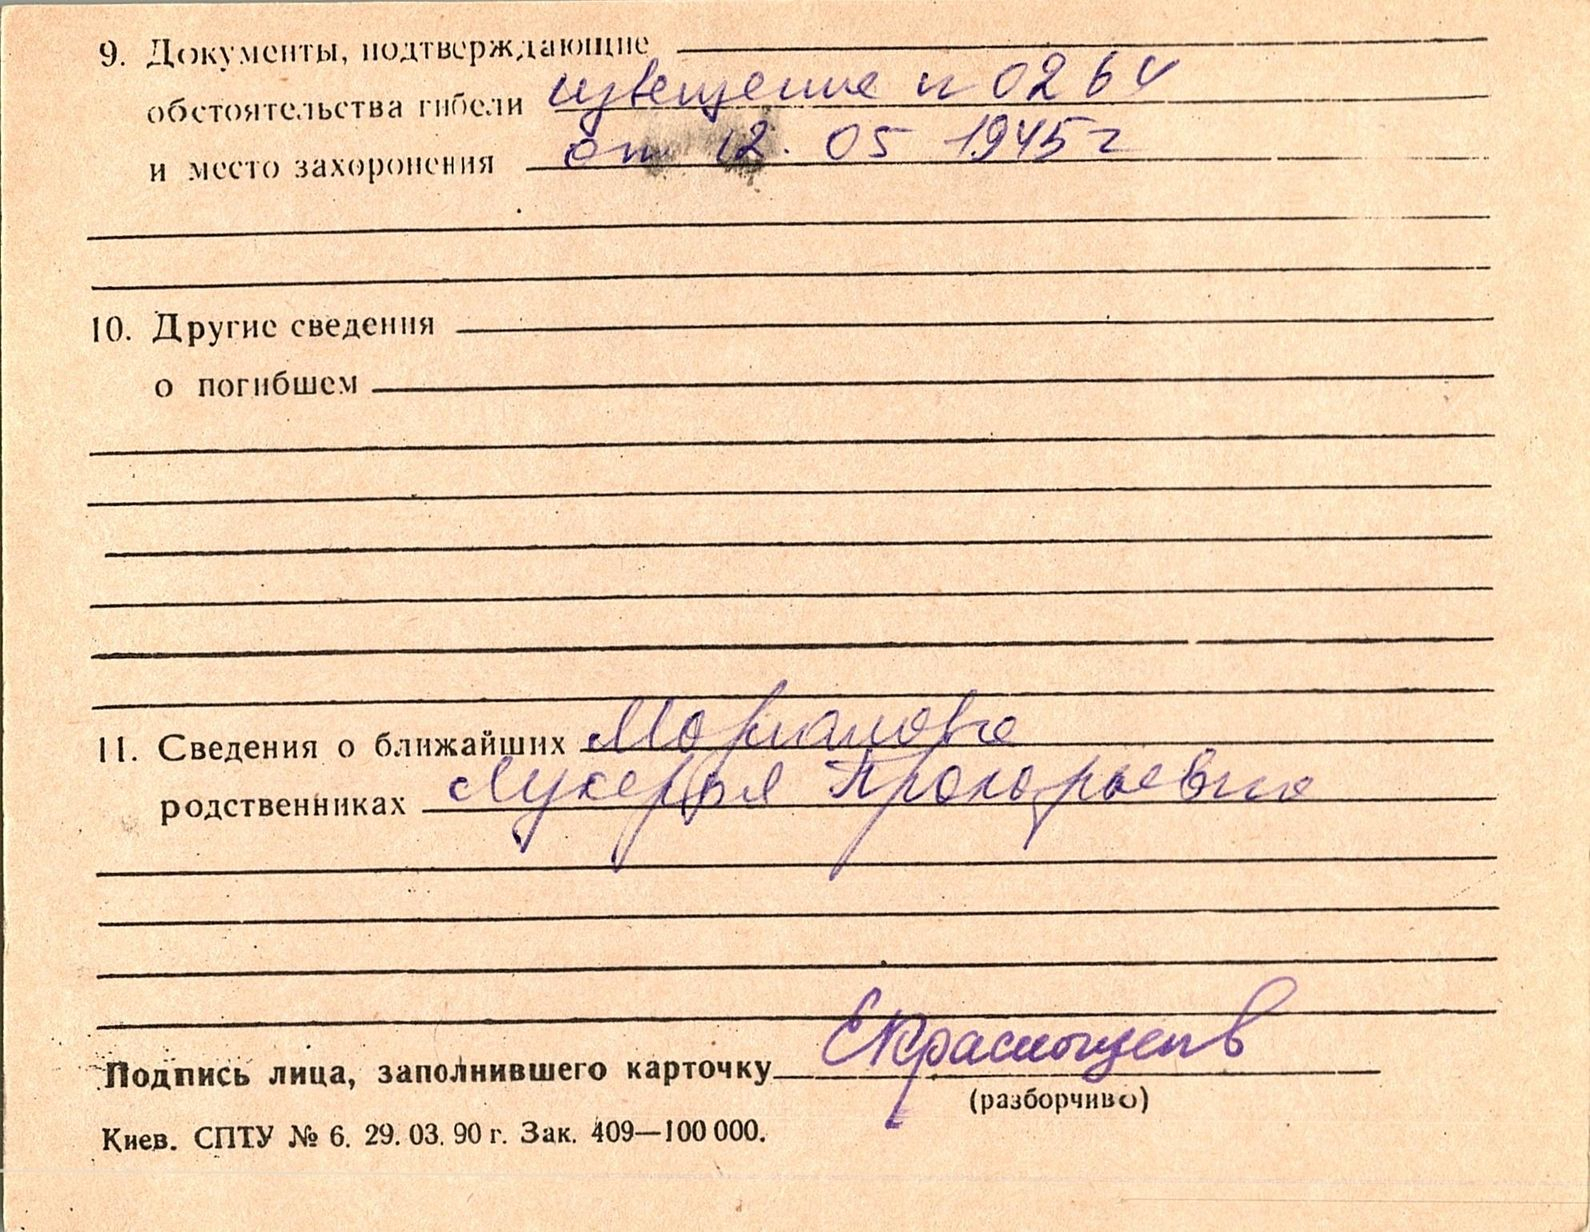 9. Документы, подтверждающие
обстоятельства гибели извещение n 0264
и место захоронения от 12. 05 1945 г
10. Другие сведения
о погибшем
11. Сведения о ближайших
родственниках Лукерья Прокорьевна
Подпись лица, заполнившего карточку
(разборчиво)
Киев. СПТУ № 6. 29. 03. 90 г. Зак. 409—100 000.